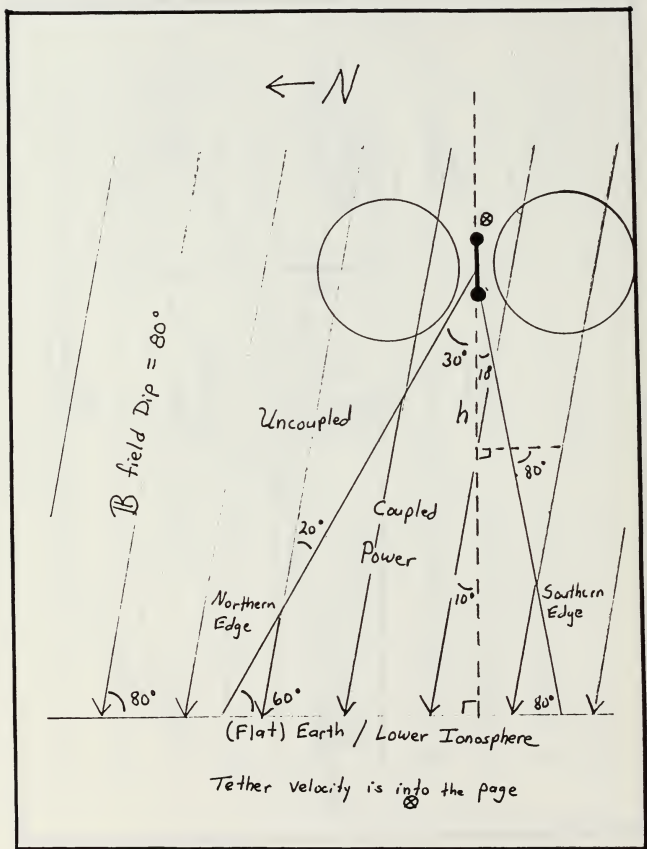 ← N
⊗
30°
10
B field Dip = 80°
h
Uncoupled
80°
20°
Coupled
Power
Northern
Edge
10°
Southern
Edge
80°
60°
80°
(Flat) Earth / Lower Ionosphere
Tether Velocity is into the page
⊗